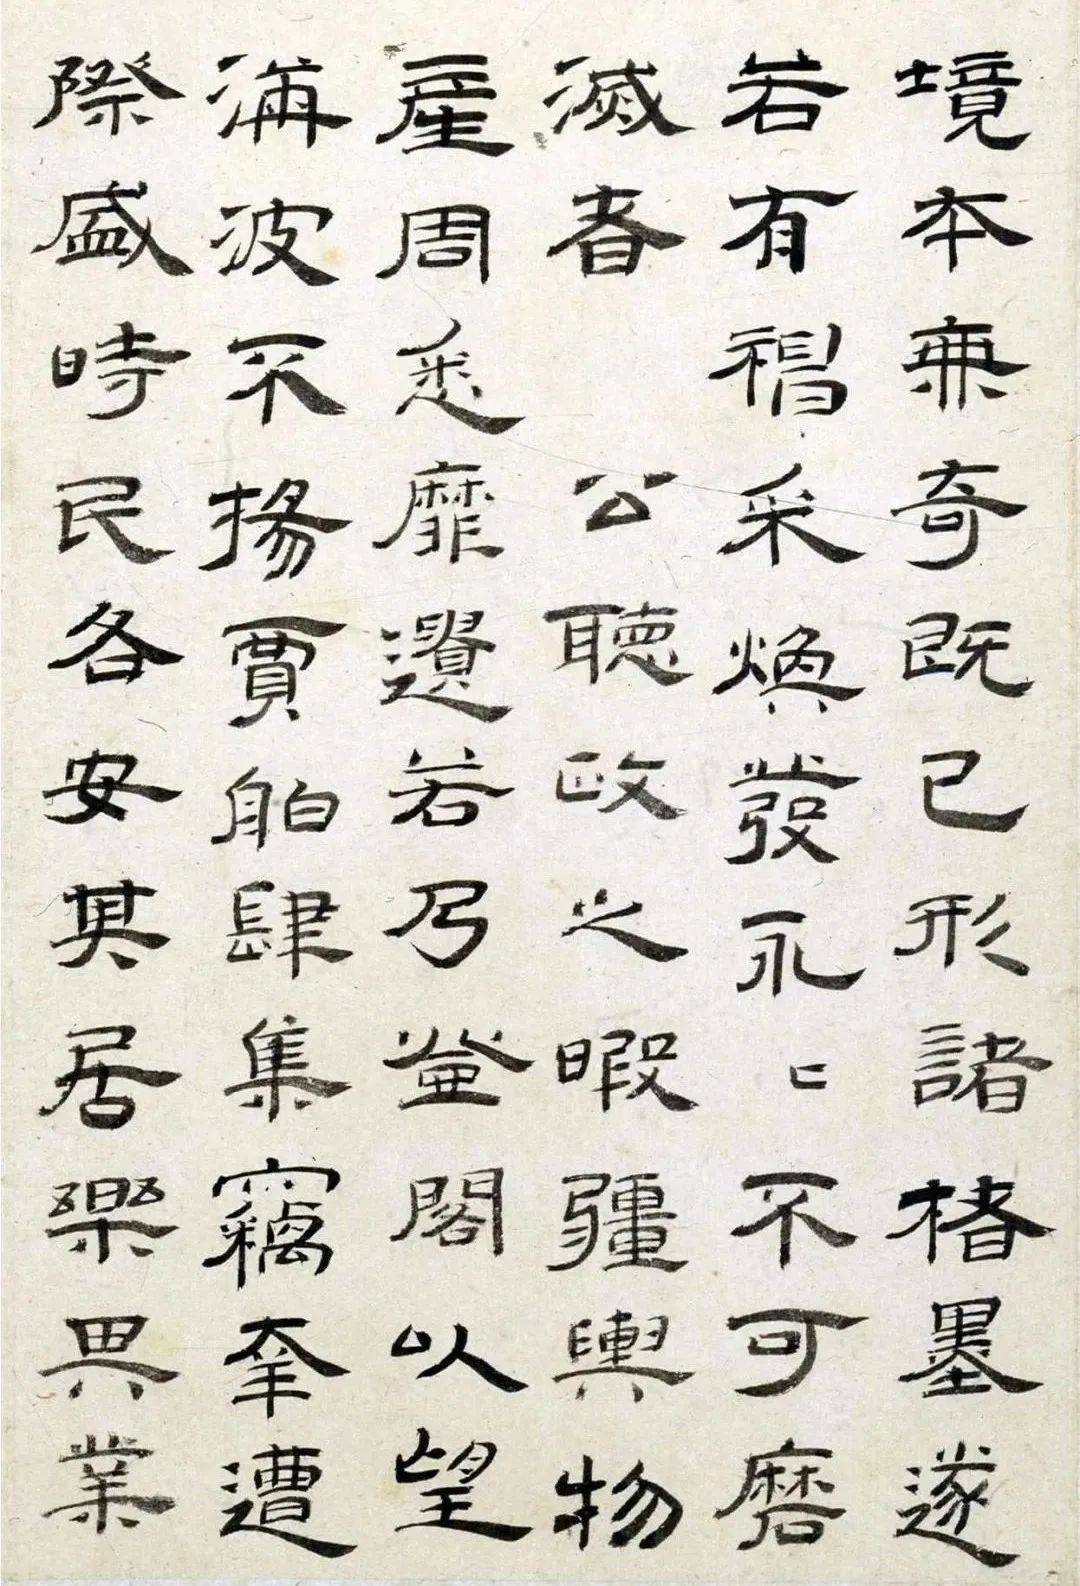 境本兼奇既已形諸楮墨遂
若有神采煥發永〻不可磨
滅者 公聽政之暇疆輿物
產周悉靡遺若乃登閣以望
海波不揚賈舶肆集竊幸遭
際盛時民各安其居樂其業